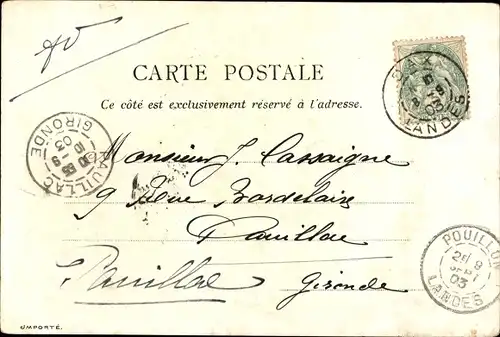 CARTE POSTALE
Ce côté est exclusivement réservé à l'adresse.
DAX
8
03
LANDES
PAUILLAC
10
-9
03
GIRONDE
Monsieur J. Cassaigne
9 Rue Bordelaise
Pauillac
Pauillac Gironde
POUILLON
8
SEPT
03
LANDES
IMPORTÉ.